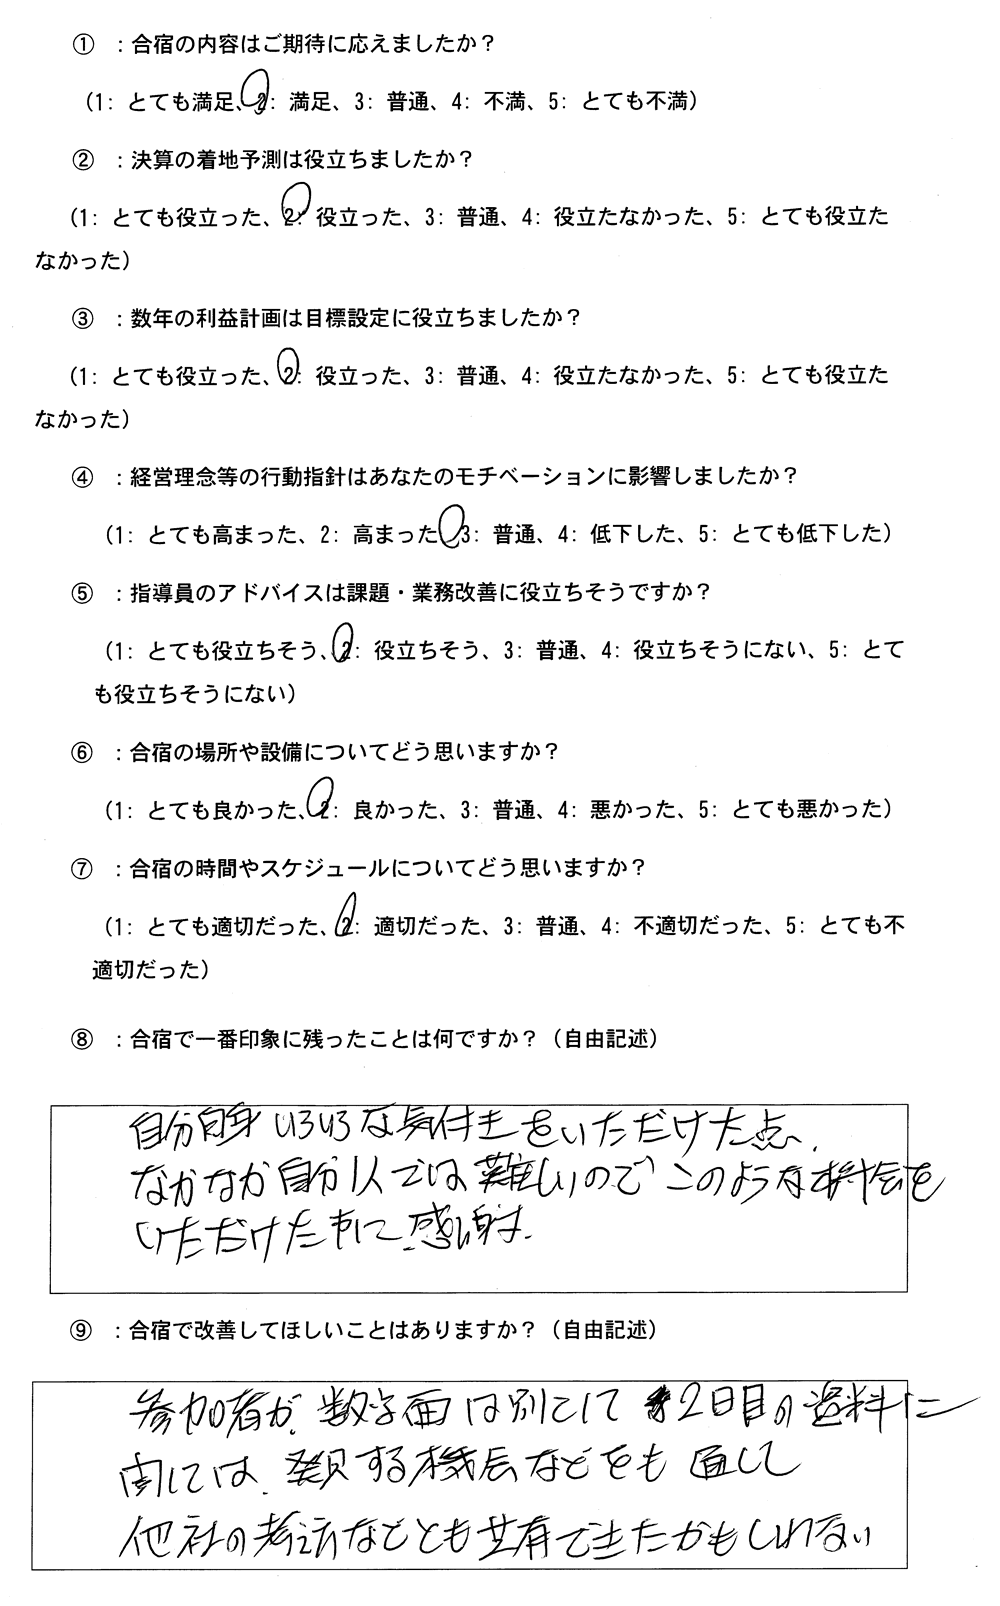 ① ：合宿の内容はご期待に応えましたか？
（1: とても満足、2: 満足、3: 普通、4: 不満、5: とても不満）
② ：決算の着地予測は役立ちましたか？
（1: とても役立った、2: 役立った、3: 普通、4: 役立たなかった、5: とても役立た
なかった）
③ ：数年の利益計画は目標設定に役立ちましたか？
（1: とても役立った、2: 役立った、3: 普通、4: 役立たなかった、5: とても役立た
なかった）
④ ：経営理念等の行動指針はあなたのモチベーションに影響しましたか？
（1: とても高まった、2: 高まった、3: 普通、4: 低下した、5: とても低下した）
⑤ ：指導員のアドバイスは課題・業務改善に役立ちそうですか？
（1: とても役立ちそう、2: 役立ちそう、3: 普通、4: 役立ちそうにない、5: とて
も役立ちそうにない）
⑥ ：合宿の場所や設備についてどう思いますか？
（1: とても良かった、2: 良かった、3: 普通、4: 悪かった、5: とても悪かった）
⑦ ：合宿の時間やスケジュールについてどう思いますか？
（1: とても適切だった、2: 適切だった、3: 普通、4: 不適切だった、5: とても不
適切だった）
⑧ ：合宿で一番印象に残ったことは何ですか？（自由記述）
自分自身いろいろな気付きをいただけた点、
なかなか自分1人では難しいのでこのような機会を
いただけた事に感謝す.
⑨ ：合宿で改善してほしいことはありますか？（自由記述）
参加者が、数字面は別にして 2日目の資料に
関しては、発表する機会などをも 通して
他社の考え方などとも共有できたかもしれない